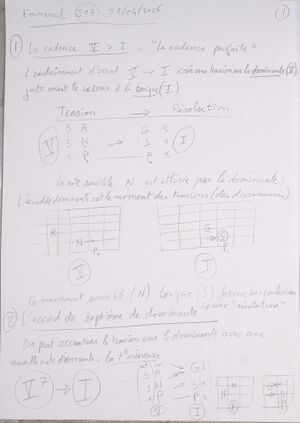 Emmanuel J17 01/04/2026 1
1 La cadence V > I - "la cadence parfaite"
L'enchaînement d'accord V → I crée une tension sur la dominante (V)
juste avant le retour à la tonique (I)
Tension → Résolution
5 R G 3
V 3 N → S 1 I
1 P P 5
La note sensible N est attirée par la dominante :
L'accord de dominante est le moment des tensions (des dissonances)
R G
N → → S
P P
V I
Ce mouvement sensible (N) tonique (S) forme une conclusion
ou une "résolution"
2 L'accord de septième de dominante
On peut accentuer la tension sur la dominante avec une
nouvelle note dissonante : la 7e mineure
V7 → I
m7 m → G 3
5 R
3 N → S 1
1 P → P 5
V I